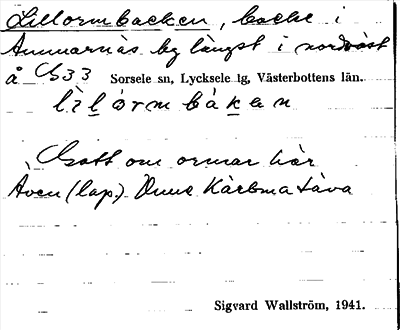 Lillormbacken, backe i
Ammarnäs by längst i nordväst
å G33 Sorsele sn, Lycksele lg, Västerbottens län.
lìlórmbákan
Gott om ormar här
Även (lap.) Unne Kärbma
Sigvard Wallström, 1941.